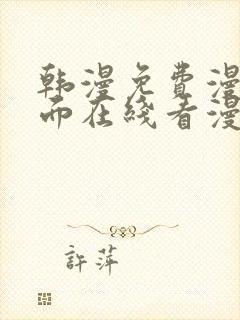 韩漫免费漫
而在线看漫
許萍